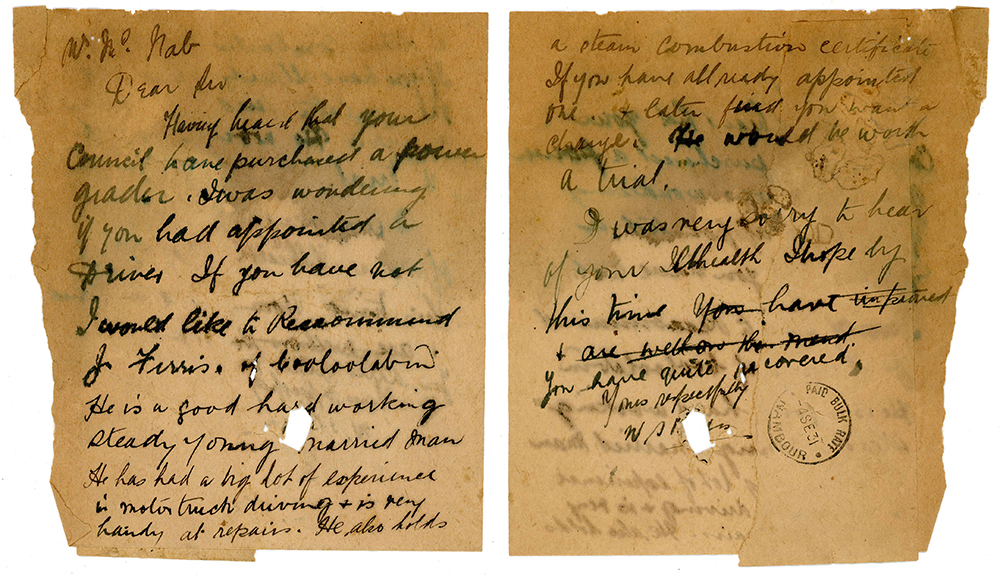 Mr. Mc. Nab
Dear Sir
Having heard that your
Council have purchased a power
grader. I was wondering
if you had appointed a
Driver If you have not
I would like to Reccommend
J. Ferris. of Cooloolabin
He is a good hard working
steady young married man
He has had a big lot of experience
in motor truck driving & is very
handy at repairs. He also holds
a steam combustion certificate
If you have allready appointed
one & later find you want a
change. He would be worth
a trial.
I was very sorry to hear
of your Illhealth I hope by
this time You have improved
& are well on the mend
You have quite recovered.
Yours respectfully
W
PAID BULK RATE
4 SE 31
NAMBOUR